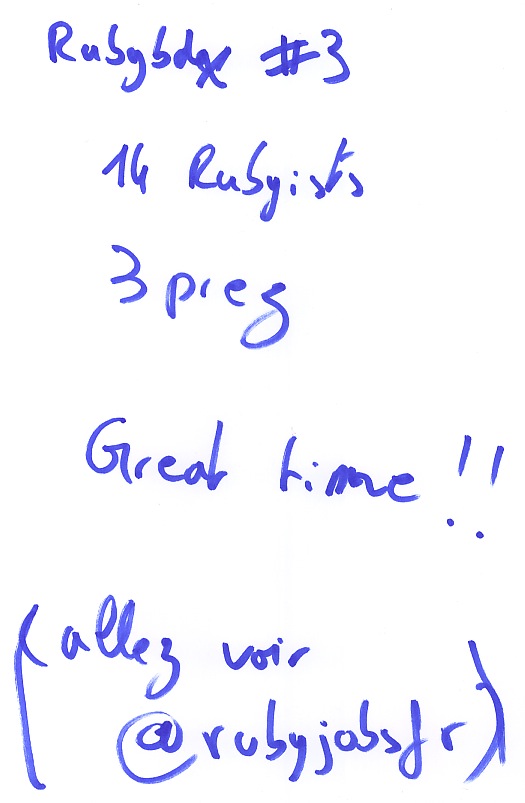 Rubybdx #3
14 Rubyists
3 prez
Great time !!
(allez voir
@rubyjobsfr)